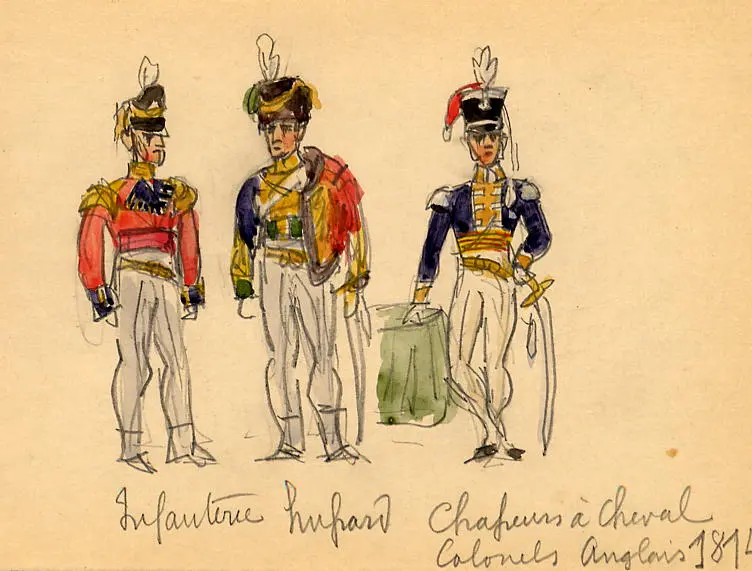 Infanterie Hussard Chasseurs à Cheval
Colonels Anglais 1814